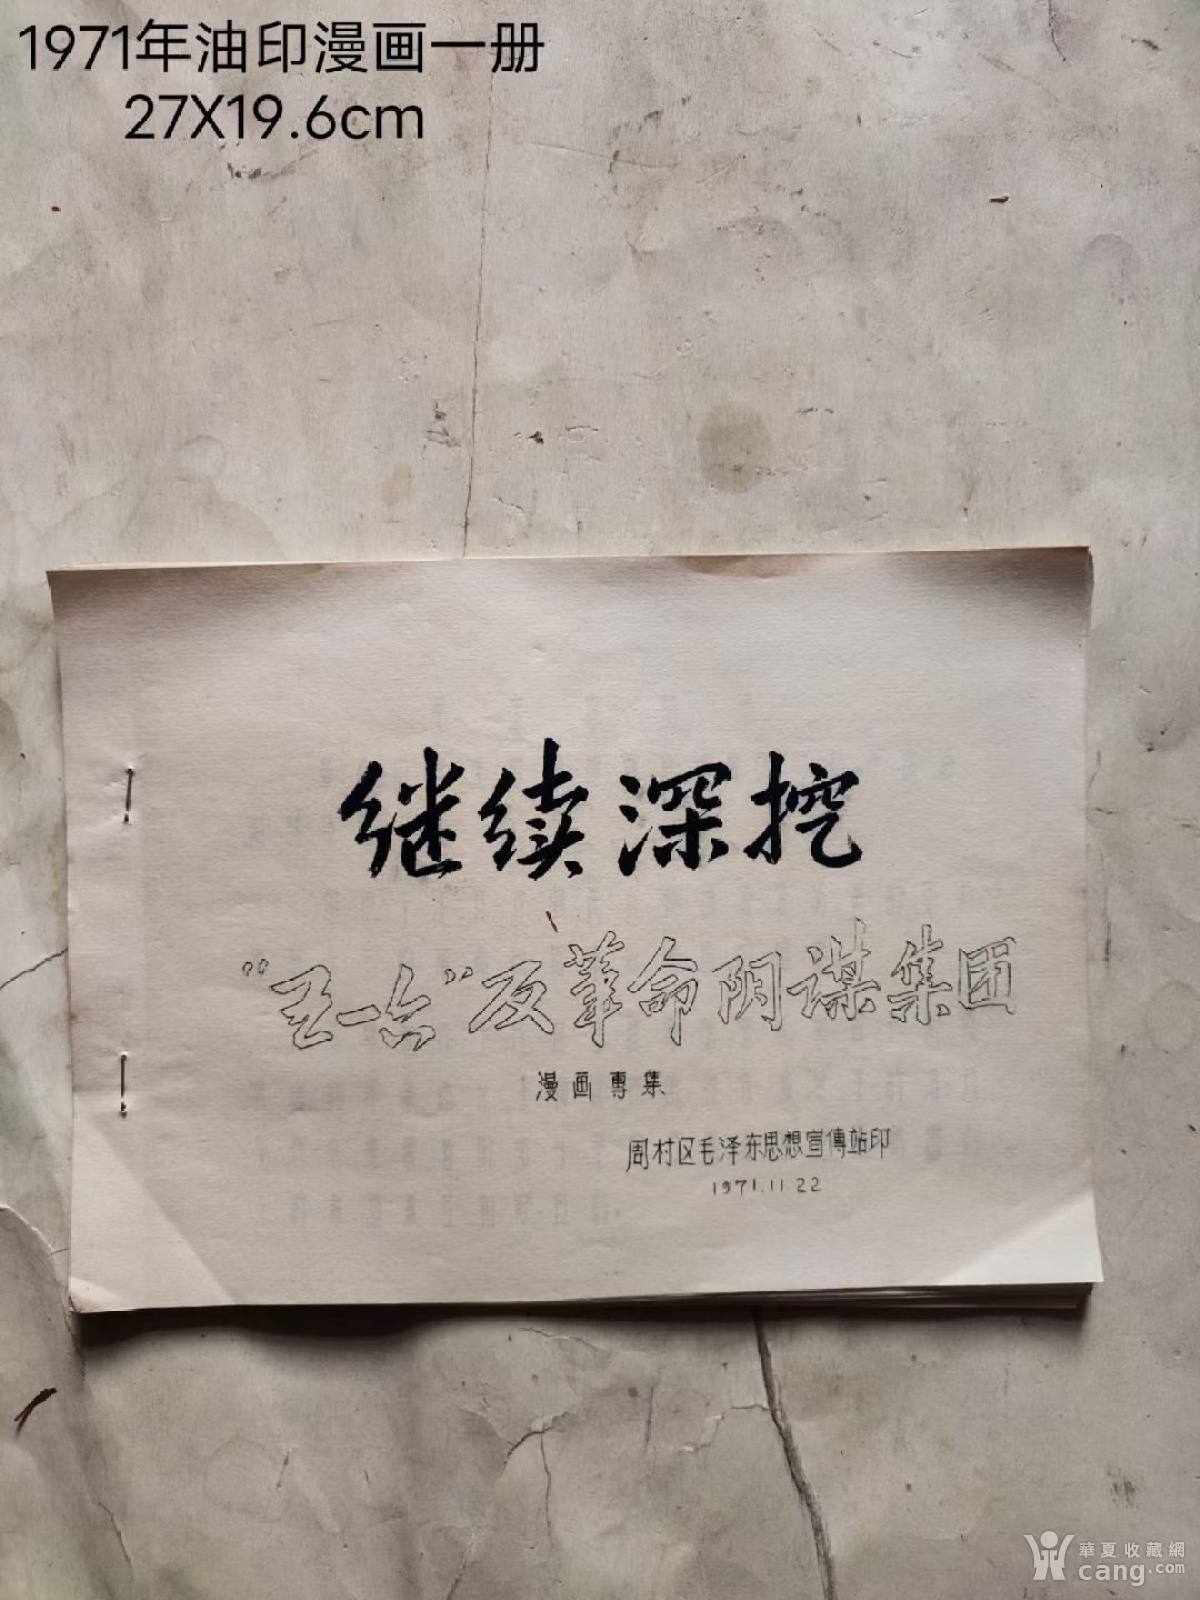 1971年油印漫画一册
27X19.6cm
继续深挖
“五一六”反革命阴谋集团
漫画專集
周村区毛泽东思想宣傳站印
1971.11.22
華夏收藏網
cang.com